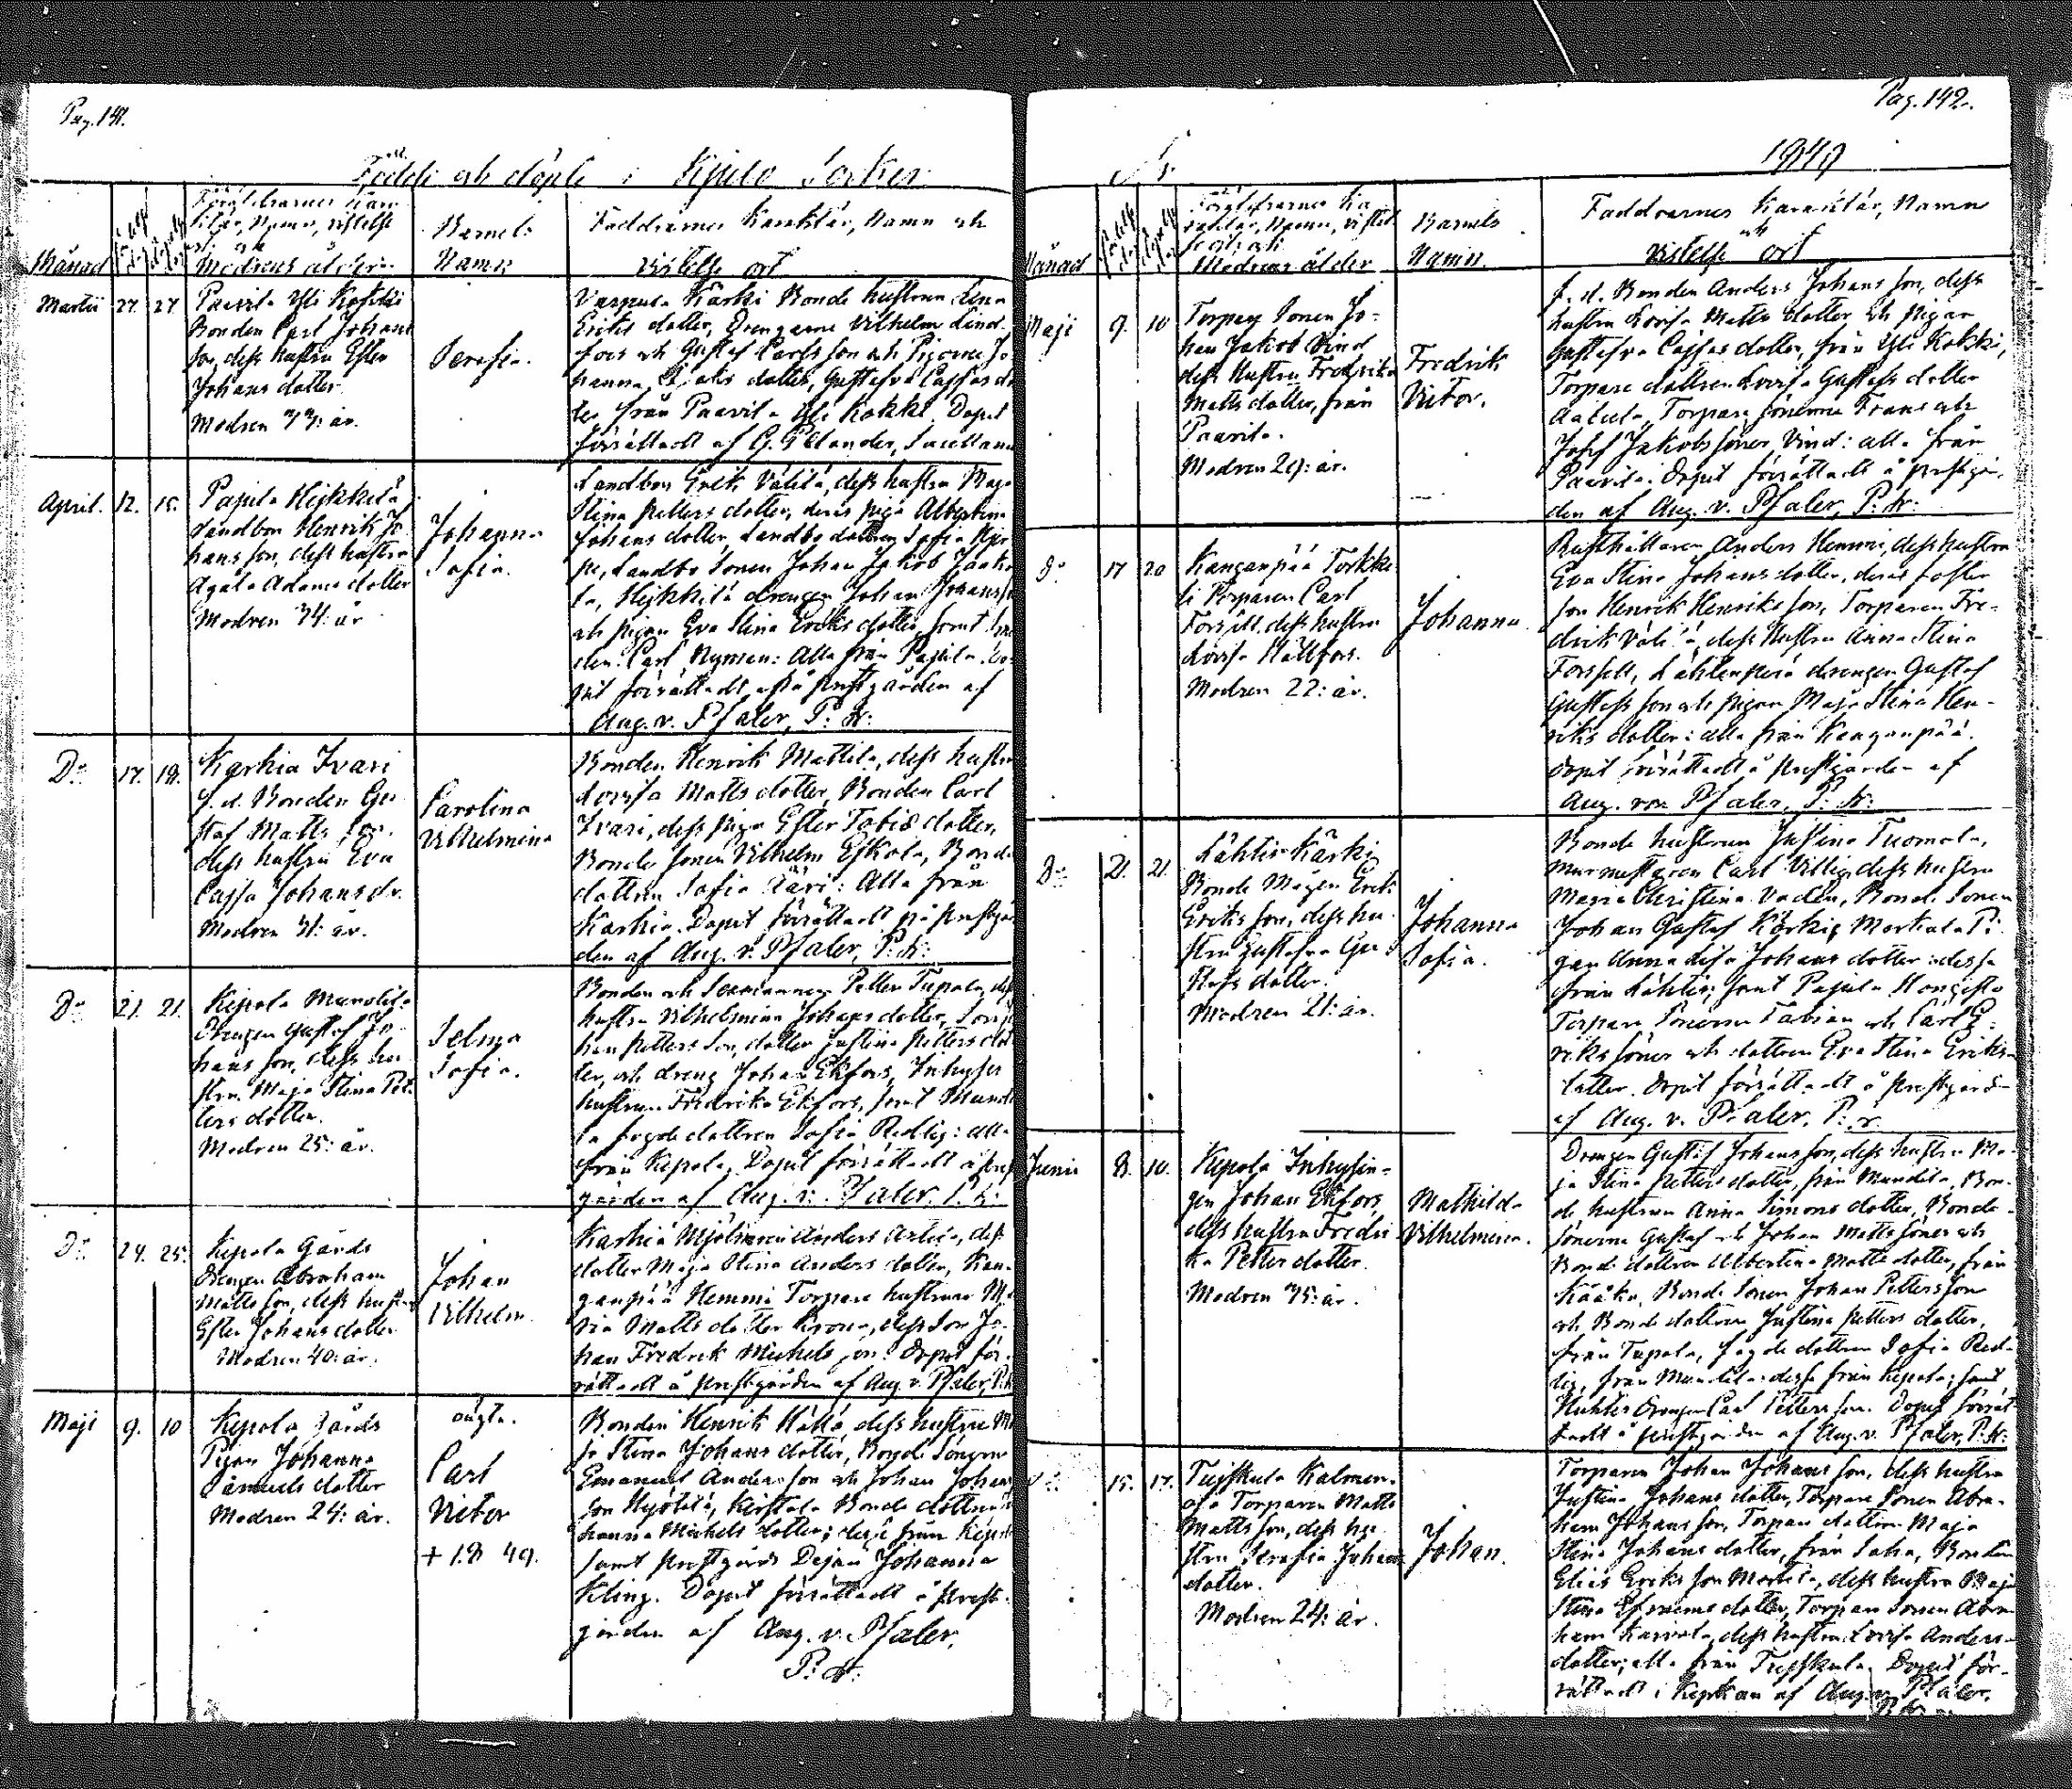 Pag. 141.
Födde och döpte i Kjulo Socken
Månad
Föräldrarnes Karak-
tär, Namn, vistelse
ort och
Modrens ålder
Barnets
Namn
Faddrarnes Karaktär, Namn och
vistelse ort
Martii 27. 27.
Paavila Yli Kokki
Bonden Carl Johans
son, dess hustru Ester
Johans dotter
Modren år.
Serafia.
Kärki Bonde hustrun Lena
Eriks dotter, Drengarne Vilhelm Lind-
fors och Gustaf Carlsson och Pigorne Jo-
hanna dotter, Gustafva Cajsas dot
ter från Paavila Yli Kokki. Doput
förrättadt af G. Polander, Sacellanus
April. 12. 15.
Pajula Heikkilä
Landbon Henrik Jo-
hansson, dess hustru
Agata Adams dotter
Modren 34: år
Johanna
Sofia.
Landbon Erik Välilä, dess hustru Maja
Stina Petters dotter, deras piga Albertina
Johans dotter, Landbo dottren Sofia
Landbo Sonen Johan Jakob
Heikkilä drengen Johan
och pigan Eva Stina Eriks dotter, samt
Carl Nyman: Alla från Pajula. Do-
put förrättadt på prestgården af
Aug. v. Pfaler, P: A:
Do 17. 18.
Karhia Ivari
f. d. Bonden Gu-
staf Matts son.
dess hustru Eva
Cajsa Johansdr.
Modren 41: år.
Carolina
Vilhelmina
Bonden Henrik Mattila, dess hustru
Lovisa Matts dotter, Bonden Carl
Ivari, dess piga Ester Tobias dotter,
Bonde sonen Vilhelm Eskola, Bonde
dottren Sofia Käri: Alla från
Karhia. Doput förrättadt på prestgår
den af Aug. v. Pfaler, P: A:
Do 21. 21.
Kepola Mundila
Drengen Gustaf Jo-
hans son, dess hu-
stru Maja Stina Pet-
ters dotter.
Modren 25: år.
Selma
Sofia.
Bonden och Petter Tupala, dess
hustru Vilhelmina Johans dotter, Son Jo
han Petters son, dotter Justina Petters dot
ter, och dreng Johan Ekfors, Inhyses
hustrun Fredrika Ekfors, samt Mundi
la fogde dottren Sofia Redlig: alla
från Kepola. Doput förrättadt å prest
gården af Aug. v. Pfaler. P. A:
Do 24. 25.
Kepola Gårds
Drengen Abraham
Mattsson, dess hustru
Ester Johans dotter
Modren 40: år.
Johan
Vilhelm.
Karhia Mjölnaren Anders dess
dotter Maja Stina Anders dotter, Kan-
ganpää Hemmi Torpare hustrun Ma
ria Matts dotter dess son Jo-
han Fredrik Michels son. Doput för-
rättadt å prestgården af Aug. v. Pfaler, P. A
Maji 9. 10
Kepola Gårds
Pigan Johanna
Samuels dotter
Modren 24: år.
oägta.
Carl
Victor
+ 1.8 49.
Bonden Henrik dess hustru Ma
ja Stina Johans dotter, Bonde Sönerne
Emanuel Anders son och Johan Johans
son Bonde dottren Jo
hanna Michels dotter; desse från Kepola
samt prestgårds Dejan Johanna
Kling. Doput förrättadt å prest-
gården af Aug. v. Pfaler,
P: A:
Pag. 142.
År 1849
Månad
Föräldrarnes Ka
raktär, Namn, vistel
se ort och
Modrens ålder
Barnets
Namn.
Faddrarnes Karaktär, Namn
och
vistelse ort
Maji 9. 10
Torpare Sonen Jo-
han Jakob Vind
dess hustru Fredrika
Matts dotter, från
Paavila.
Modren 29: år.
Fredrik
Victor.
f. d. Bonden Anders Johans son, dess
hustru Lovisa Matts dotter och pigan
Gustafva Cajsas dotter, från Yli Kokki,
Torpare dottren Lovisa Gustafs dotter
Torpare sönerne Frans och
Josef Jakobs söner Vind: alla från
Paavila. Doput förrättadt å prestgår-
den af Aug. v. Pfaler, P: A:
Do 17 20
Kanganpää Torkke
li Torparen Carl
Forssell, dess hustru
Lovisa Hällfors.
Modren 22: år.
Johanna.
Rusthållaren Anders Hemmi, dess hustru
Eva Stina Johans dotter, deras foster
son Henrik Henriks son, Torparen Fre-
drik dess hustru Anna Stina
Forssell, Lähteenperä drengen Gustaf
Gustafs son och pigan Maja Stina Hen-
riks dotter: alla från Kanganpää.
Doput förrättadt å prestgården af
Aug. von Pfaler, P: A:
Do 21. 21.
Lähtis Kärki
Bonde Mågen Erik
Eriks son, dess hu-
stru Gustafva Gu-
stafs dotter.
Modren 21: år.
Johanna
Sofia.
Bonde hustrun Justina Tuomola,
murmästaren Carl Villig dess hustru
Maria Christina Vadén, Bonde Sonen
Johan Gustaf Kärki, Pi-
gan Anna Lisa Johans dotter: dessa
från Lähtis; samt Pajula Hongisto
Torpare Sönerne Fabian och Carl E-
riks söner och dottren Eva Stina Eriks-
dotter. Doput förrättadt å prestgård
af Aug. v. Pfaler. P: A.
Junii 8. 10.
Kepola Inhysin-
gen Johan Ekfors,
dess hustru Fredri-
ka Petter dotter.
Modren 45: år.
Mathilda
Vilhelmina.
Drengen Gustaf Johansson, dess hustru Ma-
ja Stina Petters dotter, från Mundila, Bon-
de hustrun Anna Simons dotter, Bonde
Sönerne Gustaf och Johan Matts söner och
Bonde dottren Albertina Matts dotter, från
Kääkä, Bonde Sonen Johan Petters son
och Bonde dottren Justina Petters dotter,
från Tupala, fogde dottren Sofia Red-
lig, från Mundila: dessa från Kepola; samt
drengen Carl Petters son. Doput förrät-
tadt å prestgården af Aug. v. Pfaler, P: A:
Do 15. 17.
Tujskula Kalmen-
oja Torparen Matts
Matts son, dess hu-
stru Serafia Johans
dotter.
Modren 24: år.
Johan.
Torparen Johan Johans son, dess hustru
Justina Johans dotter, Torpare Sonen Abra-
ham Johans son, Torpare dottren Maja
Stina Johans dotter, från Saha, Bonden
Elias Eriks son dess hustru Maja
Stina Efraims dotter, Torpare Sonen Abra-
ham dess hustru Lovisa Anders-
dotter; alla från Tujskula. Doput för-
rättadt i Kyrkan af Aug. v. Pfaler.